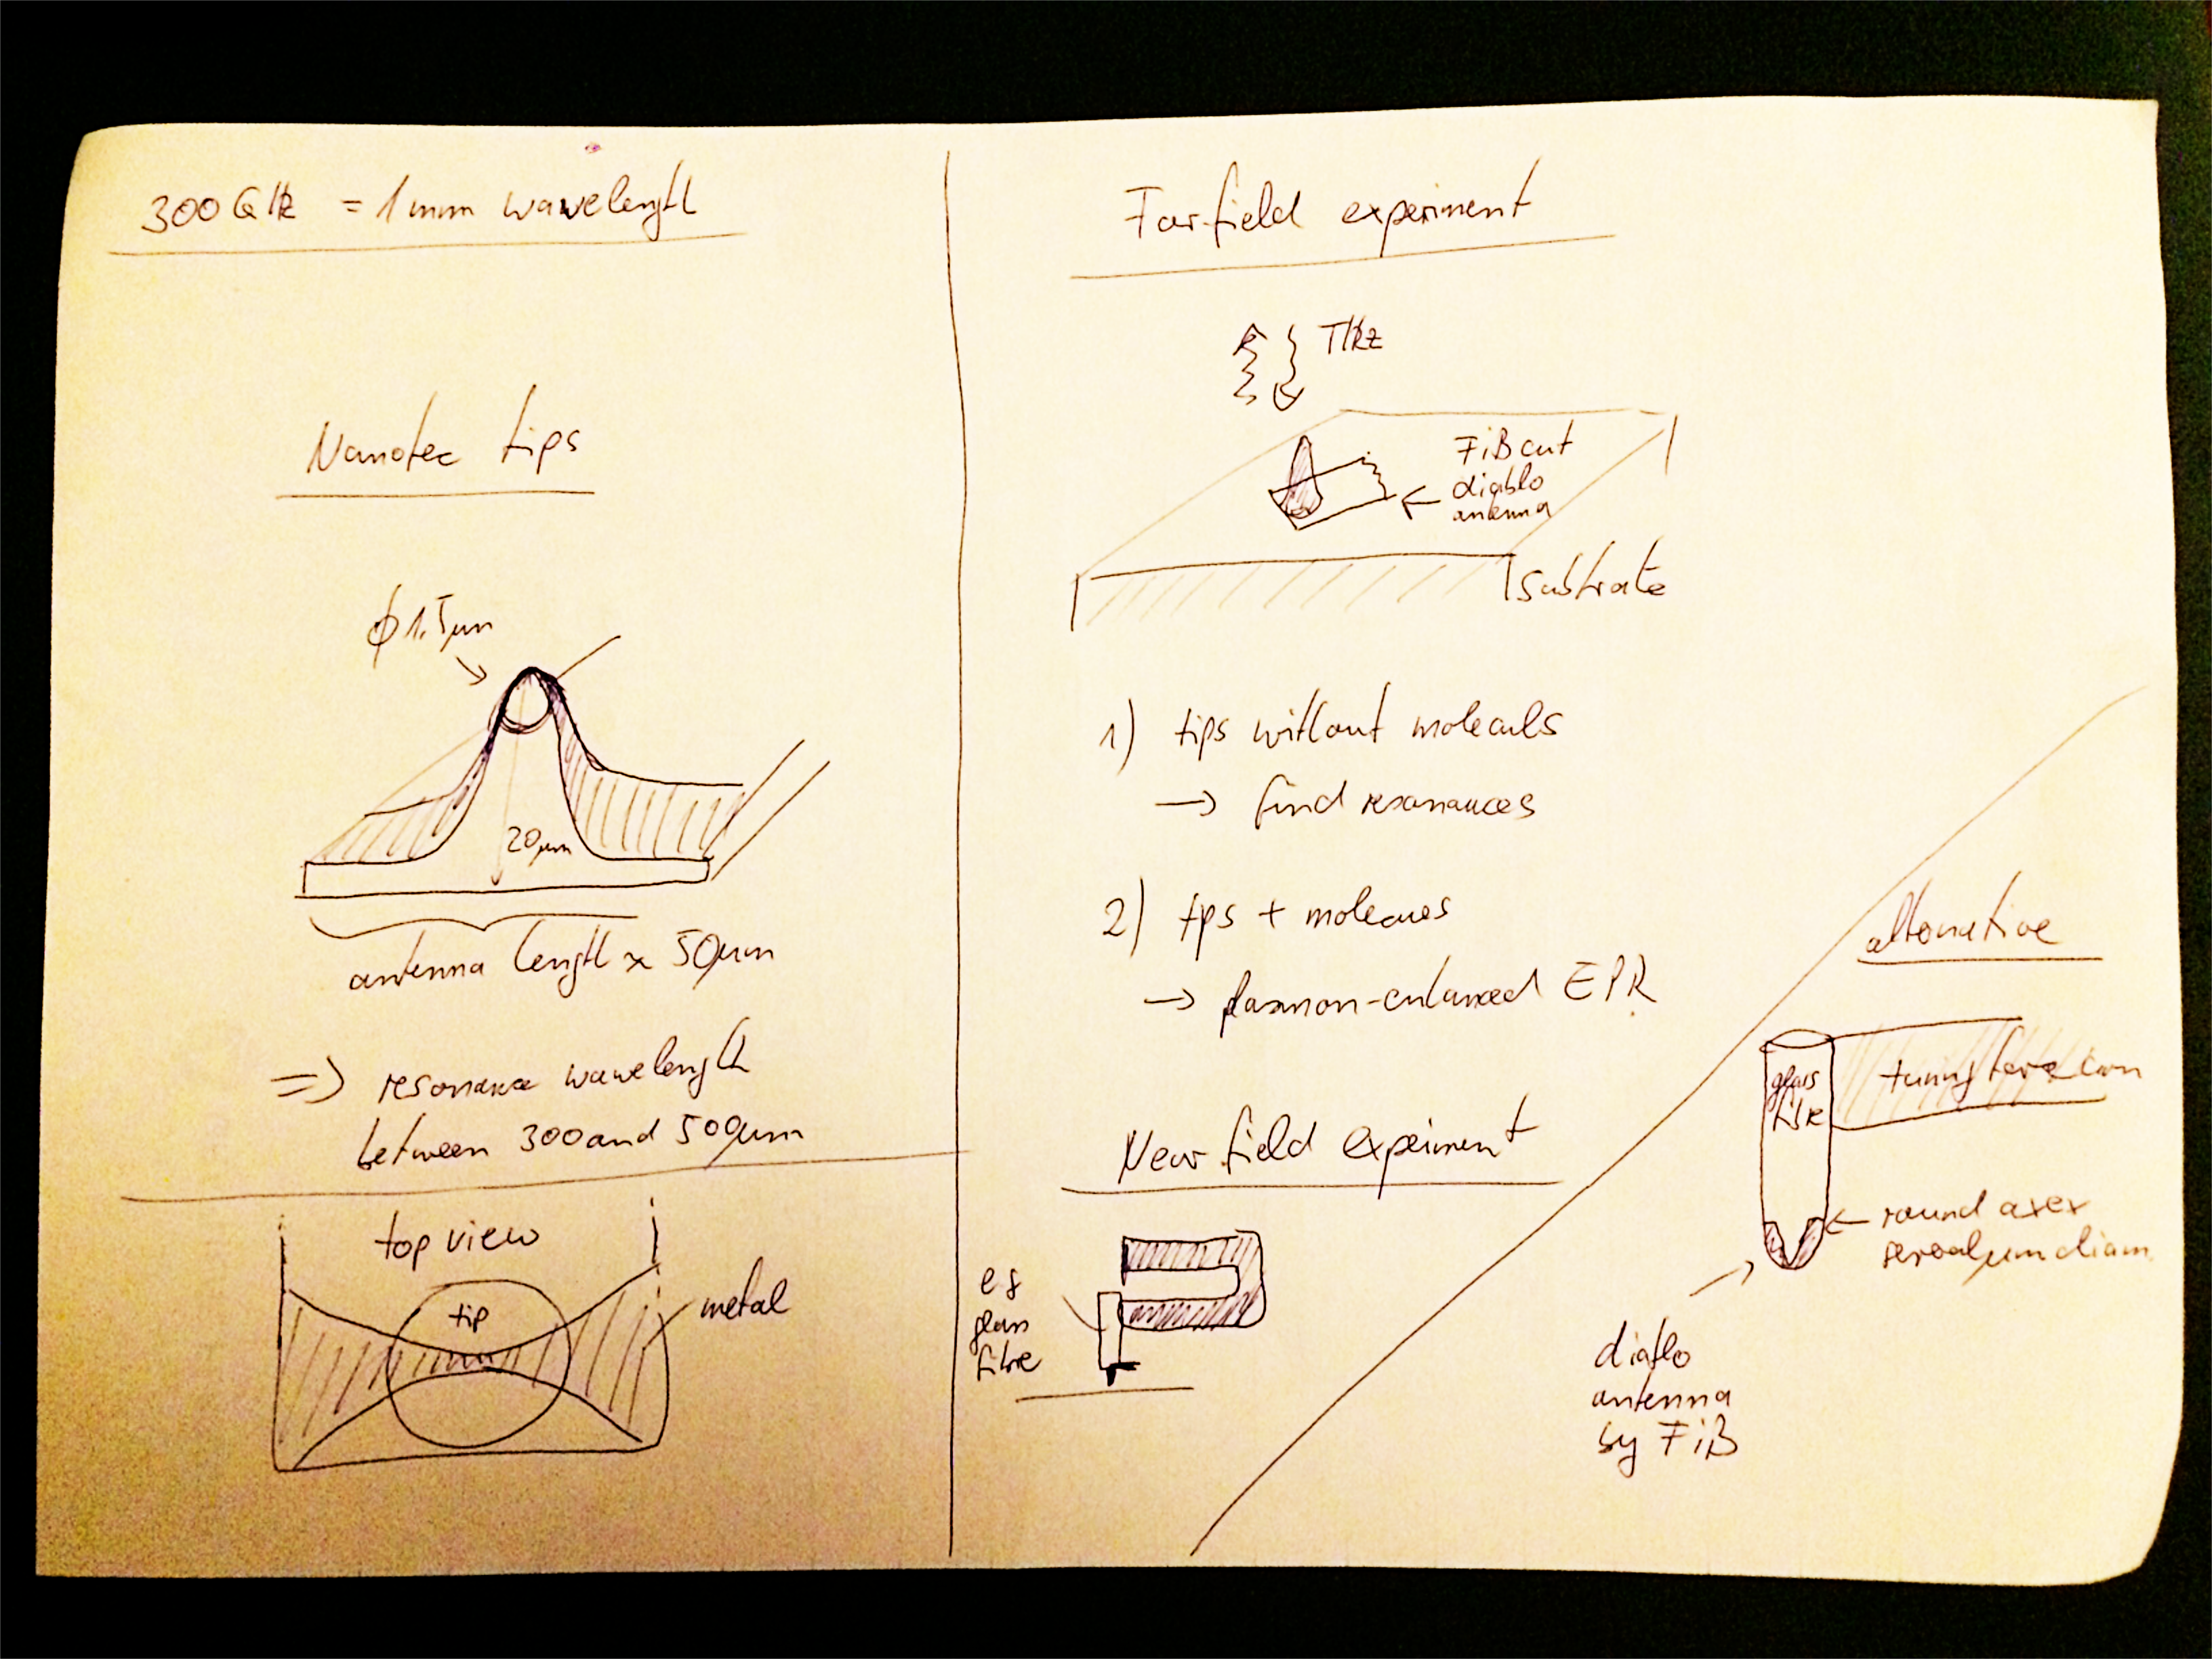 300 GHz = 1mm wavelength
Nanotec tips
φ 1.5μm
20μm
antenna length ≈ 50μm
=> resonance wavelength
between 300 and 500μm
top view
tip
metal
Far-field experiment
THz
FiB cut
diablo
antenna
substrate
1) tips without moleculs
→ find resonances
2) tips + molecules
→ plasmon-enhanced EPR
Near field experiment
eg
glass
fibre
alternative
glass
fibre
tuning fork
round
several μm diam.
diablo
antenna
by FiB